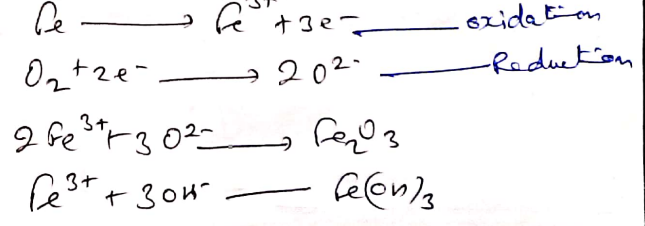 Fe ⟶ Fe³⁺ + 3e⁻ —— oxidation
O₂ + 2e⁻ ⟶ 2O²⁻ —— Reduction
2Fe³⁺ + 3O²⁻ ⟶ Fe₂O₃
Fe³⁺ + 3OH⁻ —— Fe(OH)₃